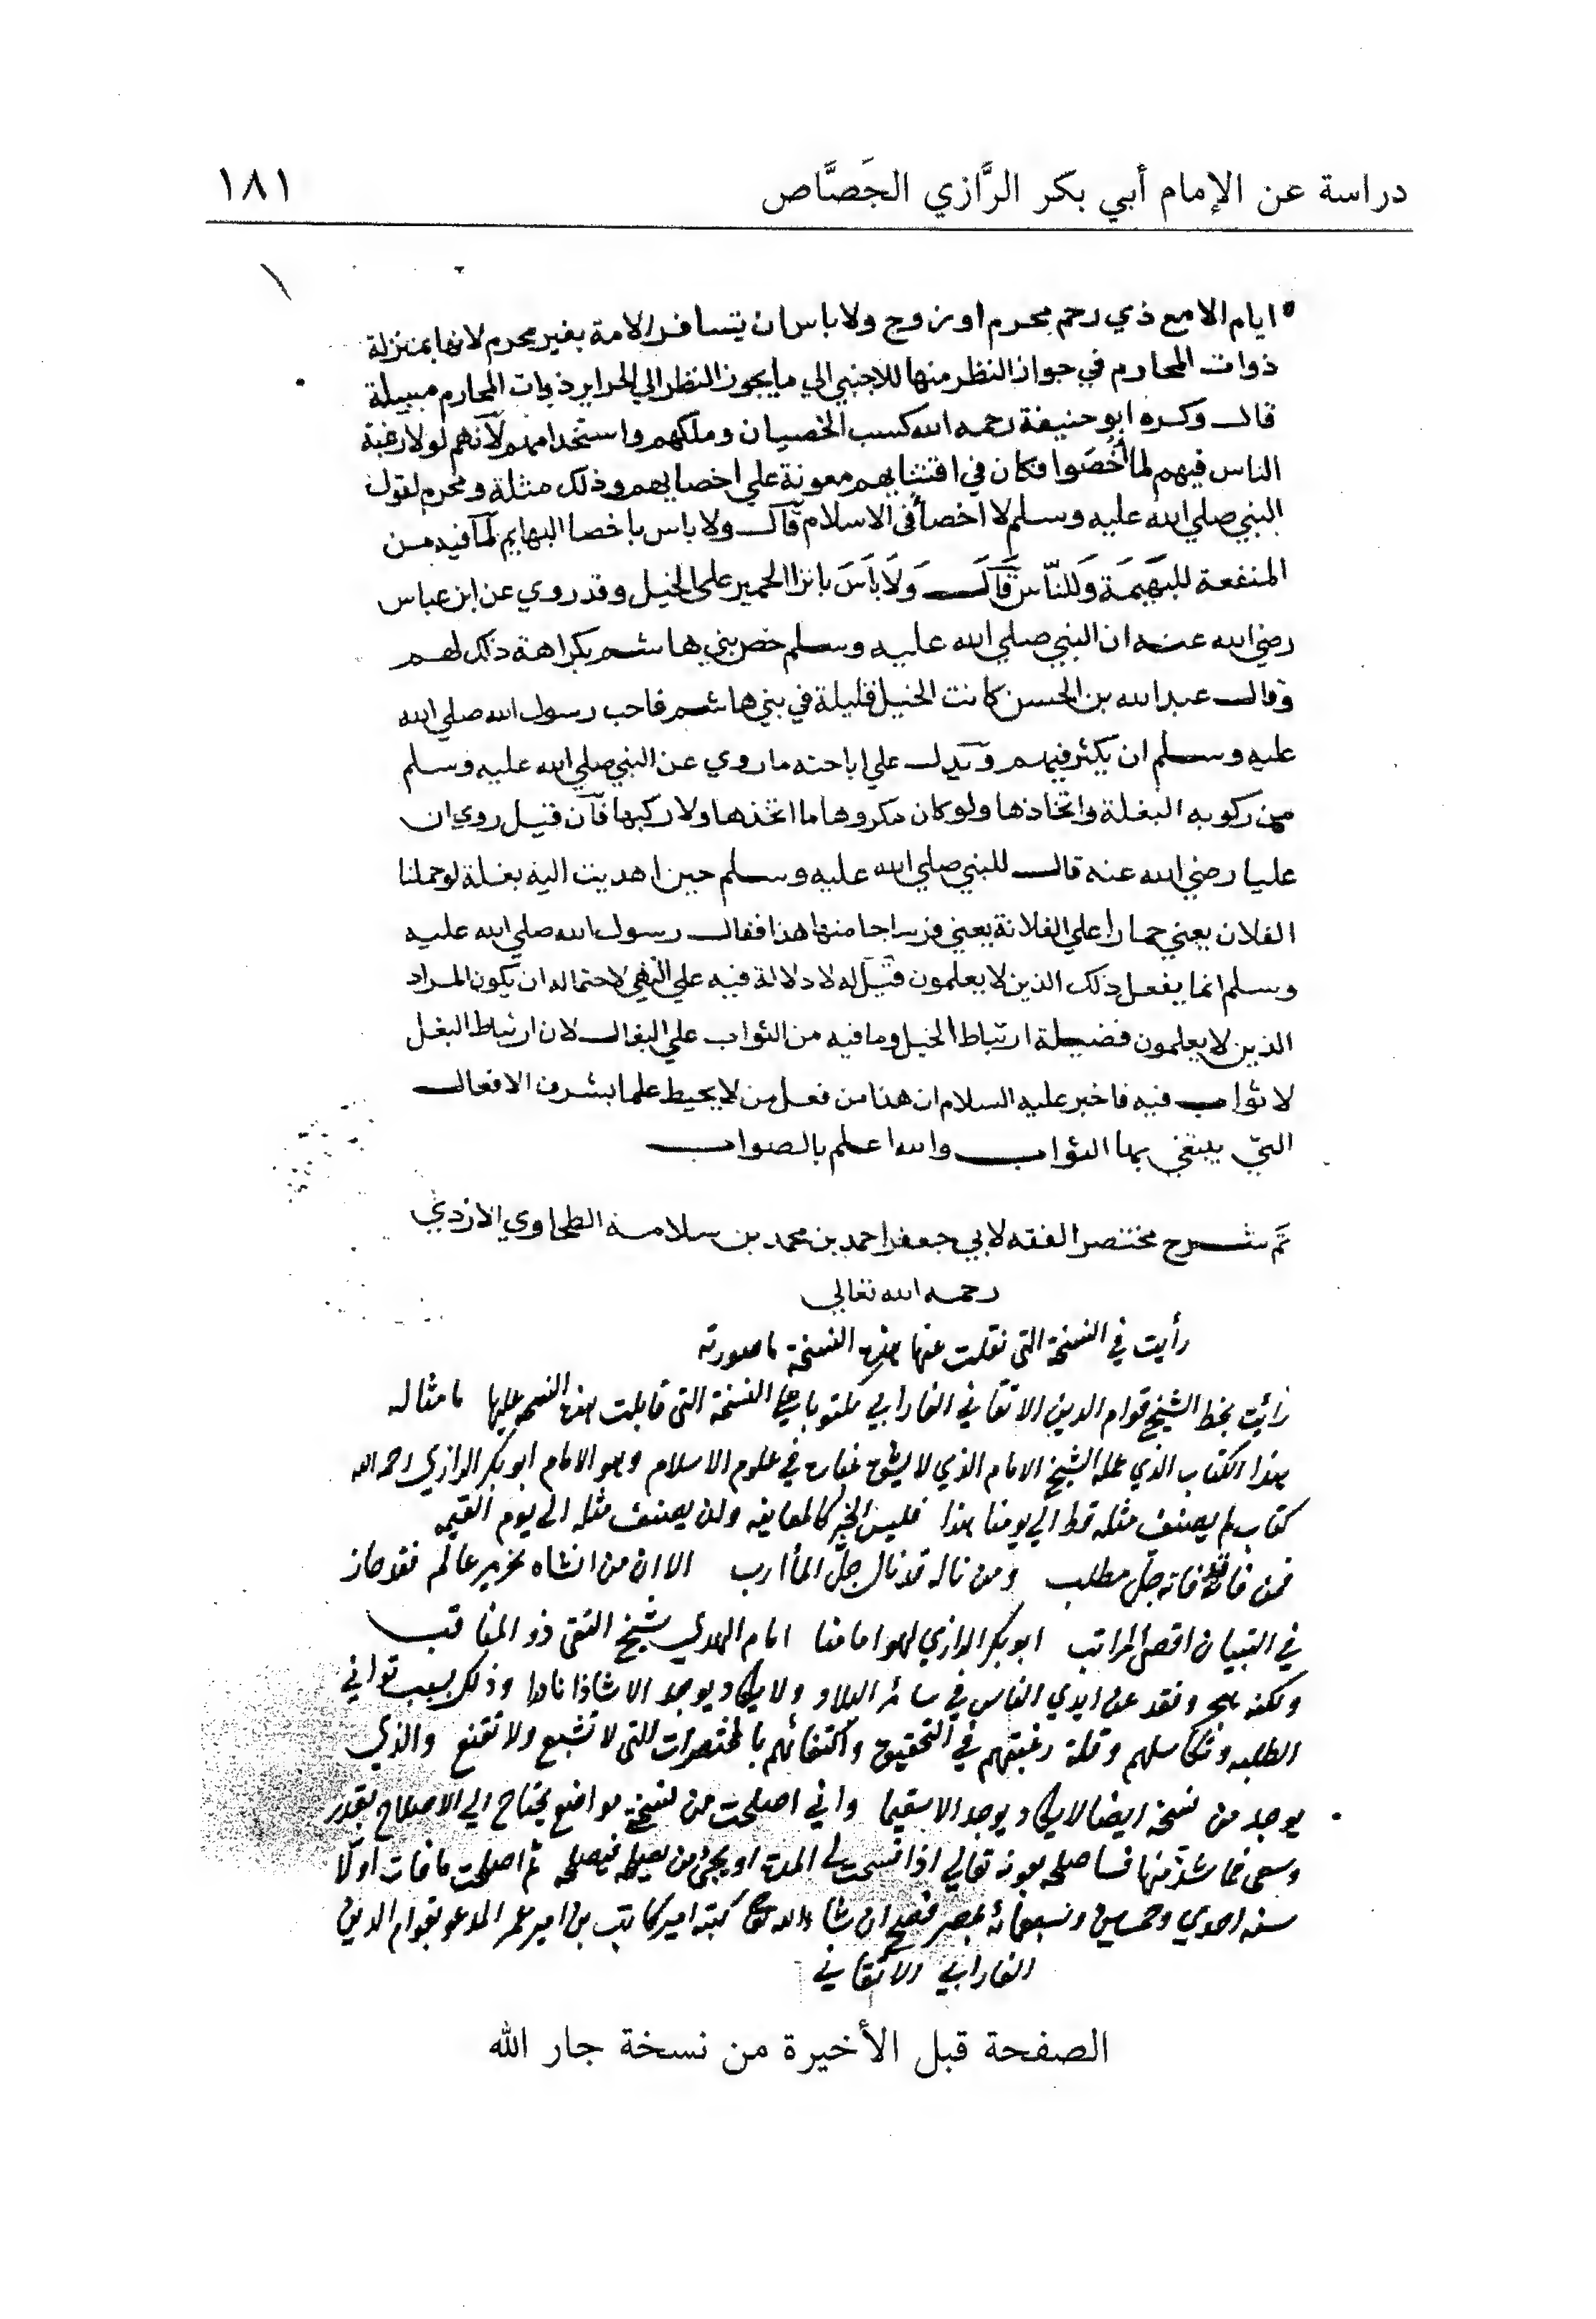 دراسة عن الإمام أبي بكر الرَّازي الجَصَّاص ١٨١
ايام الا مع ذي رحم محرم او زوج ولا باس ان تسافر الامة بغير محرم لانها بمنزلة
ذوات المحارم في جواز النظر منها للاجنبي الي ما يجوز النظر الي الحراير ذوات المحارم مسيلة
قال وكره ابو حنيفة رحمه الله كسب الخصيان وملكهم واستخدامهم لانهم لولا رغبة
الناس فيهم لما أُخْصَوا فكان في اقتنايهم معونة علي اخصايهم وذلك مثلة ومحرم لقول
النبي صلي الله عليه وسلم لا اخصأ في الاسلام قال ولا باس باخصا البهايم لما فيه من
المنفعة للبَهَيمَة وَللنَّاسَ قَالَ وَلَا بَاسَ بانزا الحمير علي الخيل وقد روي عن ابن عباس
رضي الله عنه ان النبي صلي الله عليه وسلم خص بني هاشم بكراهة ذلك لهم
وقال عبد الله بن الحسن كانت الخيل قليلة في بني هاشم فاحب رسول الله صلي الله
عليه وسلم ان يكثر فيهم ويدل علي اباحته ما روي عن النبي صلي الله عليه وسلم
من ركوبه البغلة واتخاذها ولو كان مكروها ما اتخذها ولا ركبها فان قيل روي ان
عليا رضي الله عنه قال للنبي صلي الله عليه وسلم حين اهديت اليه بغلة لو حملنا
الفلان يعني حمارا علي الفلانة يعني فرسا جا منها هذا فقال رسول الله صلي الله عليه
وسلم انما يفعل ذلك الذين لا يعلمون قيل له لا دلالة فيه علي النهي لاحتماله ان يكون المراد
الذين لا يعلمون فضيلة ارتباط الخيل وما فيه من الثواب علي البغال لان ارتباط البغل
لا ثواب فيه فاخبر عليه السلام ان هذا من فعل من لا يحيط علما بشرف الافعال
التي يبتغي بها الثواب والله اعلم بالصواب
تم شرح مختصر الفقه لابي جعفر احمد بن محمد بن سلامة الطحاوي الازدي
رحمه الله تعالي
رأيت في النسخة التي نقلت عنها هذه النسخة ما صورته
رأيت بخط الشيخ قوام الدين الاتقاني الفارابي مكتوبا علي النسخة التي قابلت هذه النسخة عليها ما مثاله
هذا الكتاب الذي عمله الشيخ الامام الذي لا يشق غباره في علوم الاسلام وهو الامام ابو بكر الرازي رحمه الله
كتاب لم يصنف مثله قط الي يومنا هذا فليس الخبر كالمعاينه ولن يصنف مثله الي يوم القيمه
فمن فاته فاته جل مطلب ومن ناله قد نال جلّ المأارب الا ان من انشاه نحرير عالم فقد حاز
في التبيان اقصي المراتب ابو بكر الرازي لهو امامنا امام الهدي شيخ التقي ذو المناقب
ولكنه هجر وفقد عن ايدي الناس في سائر البلاد ولا يكاد يوجد الا شاذا نادرا وذلك بسبب تواني
الطلبه وتكاسلهم وقلة رغبتهم في التحقيق واكتفائهم بالمختصرات التي لا تشبع ولا تقنع والذي
يوجد من نسخه ايضا لا يكاد يوجد الا سقيما واني اصلحت من نسخة مواضع يحتاج الي الاصلاح بقدر
وسعي فما شذ منها فساصلحه بعونه تعالي اذا فسحت لي المدة او يجئ من يصلحه فيصلحه ثم اصلحت ما فات اولا
سنه احدي وخمسين وسبعمائة بمصر فصح ان شاء الله كتبه امير كاتب بن امير عمر المدعو بقوام الدين
الفارابي الاتقاني
الصفحة قبل الأخيرة من نسخة جار الله